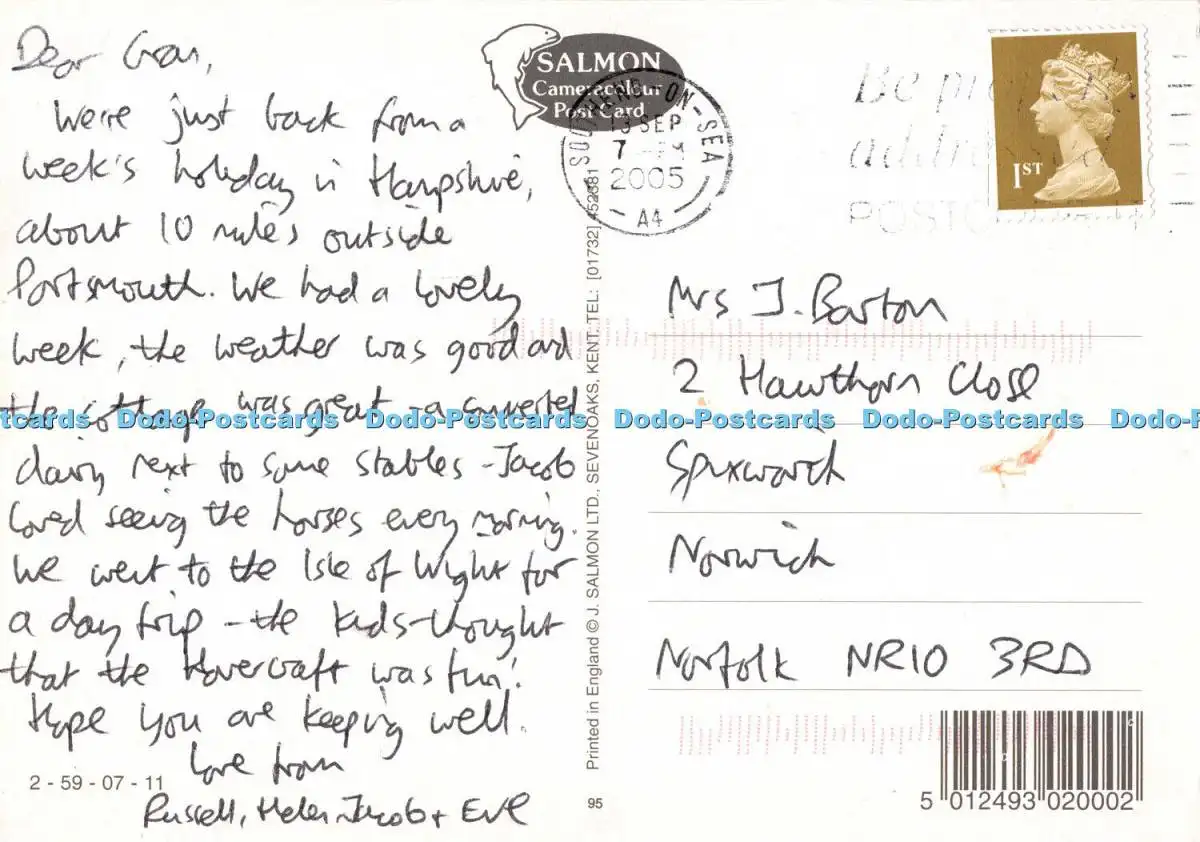 Dear Gran,
We're just back from a
week's holiday in Hampshire,
about 10 miles outside
Portsmouth. We had a lovely
week, the weather was good and
the cottage was great - a converted
dairy next to some stables - Jacob
loved seeing the horses every morning.
We went to the Isle of Wight for
a day trip - the kids thought
that the Hovercraft was fun!
Hope you are keeping well.
Love from
Russell, Helen, Jacob + Eve
2 - 59 - 07 - 11
SALMON
Cameracolour
Post Card
SOUTHEND-ON-SEA
13 SEP
7 PM
2005
A4
Be
POSTC
1ST
Printed in England © J. SALMON LTD., SEVENOAKS, KENT. TEL: [01732] 452381
95
Mrs J. Barton
2 Hawthorn Close
Spixworth
Norwich
Norfolk NR10 3RD
5 012493 020002
Dodo-Postcards Dodo-Postcards Dodo-Postcards Dodo-Postcards Dodo-P